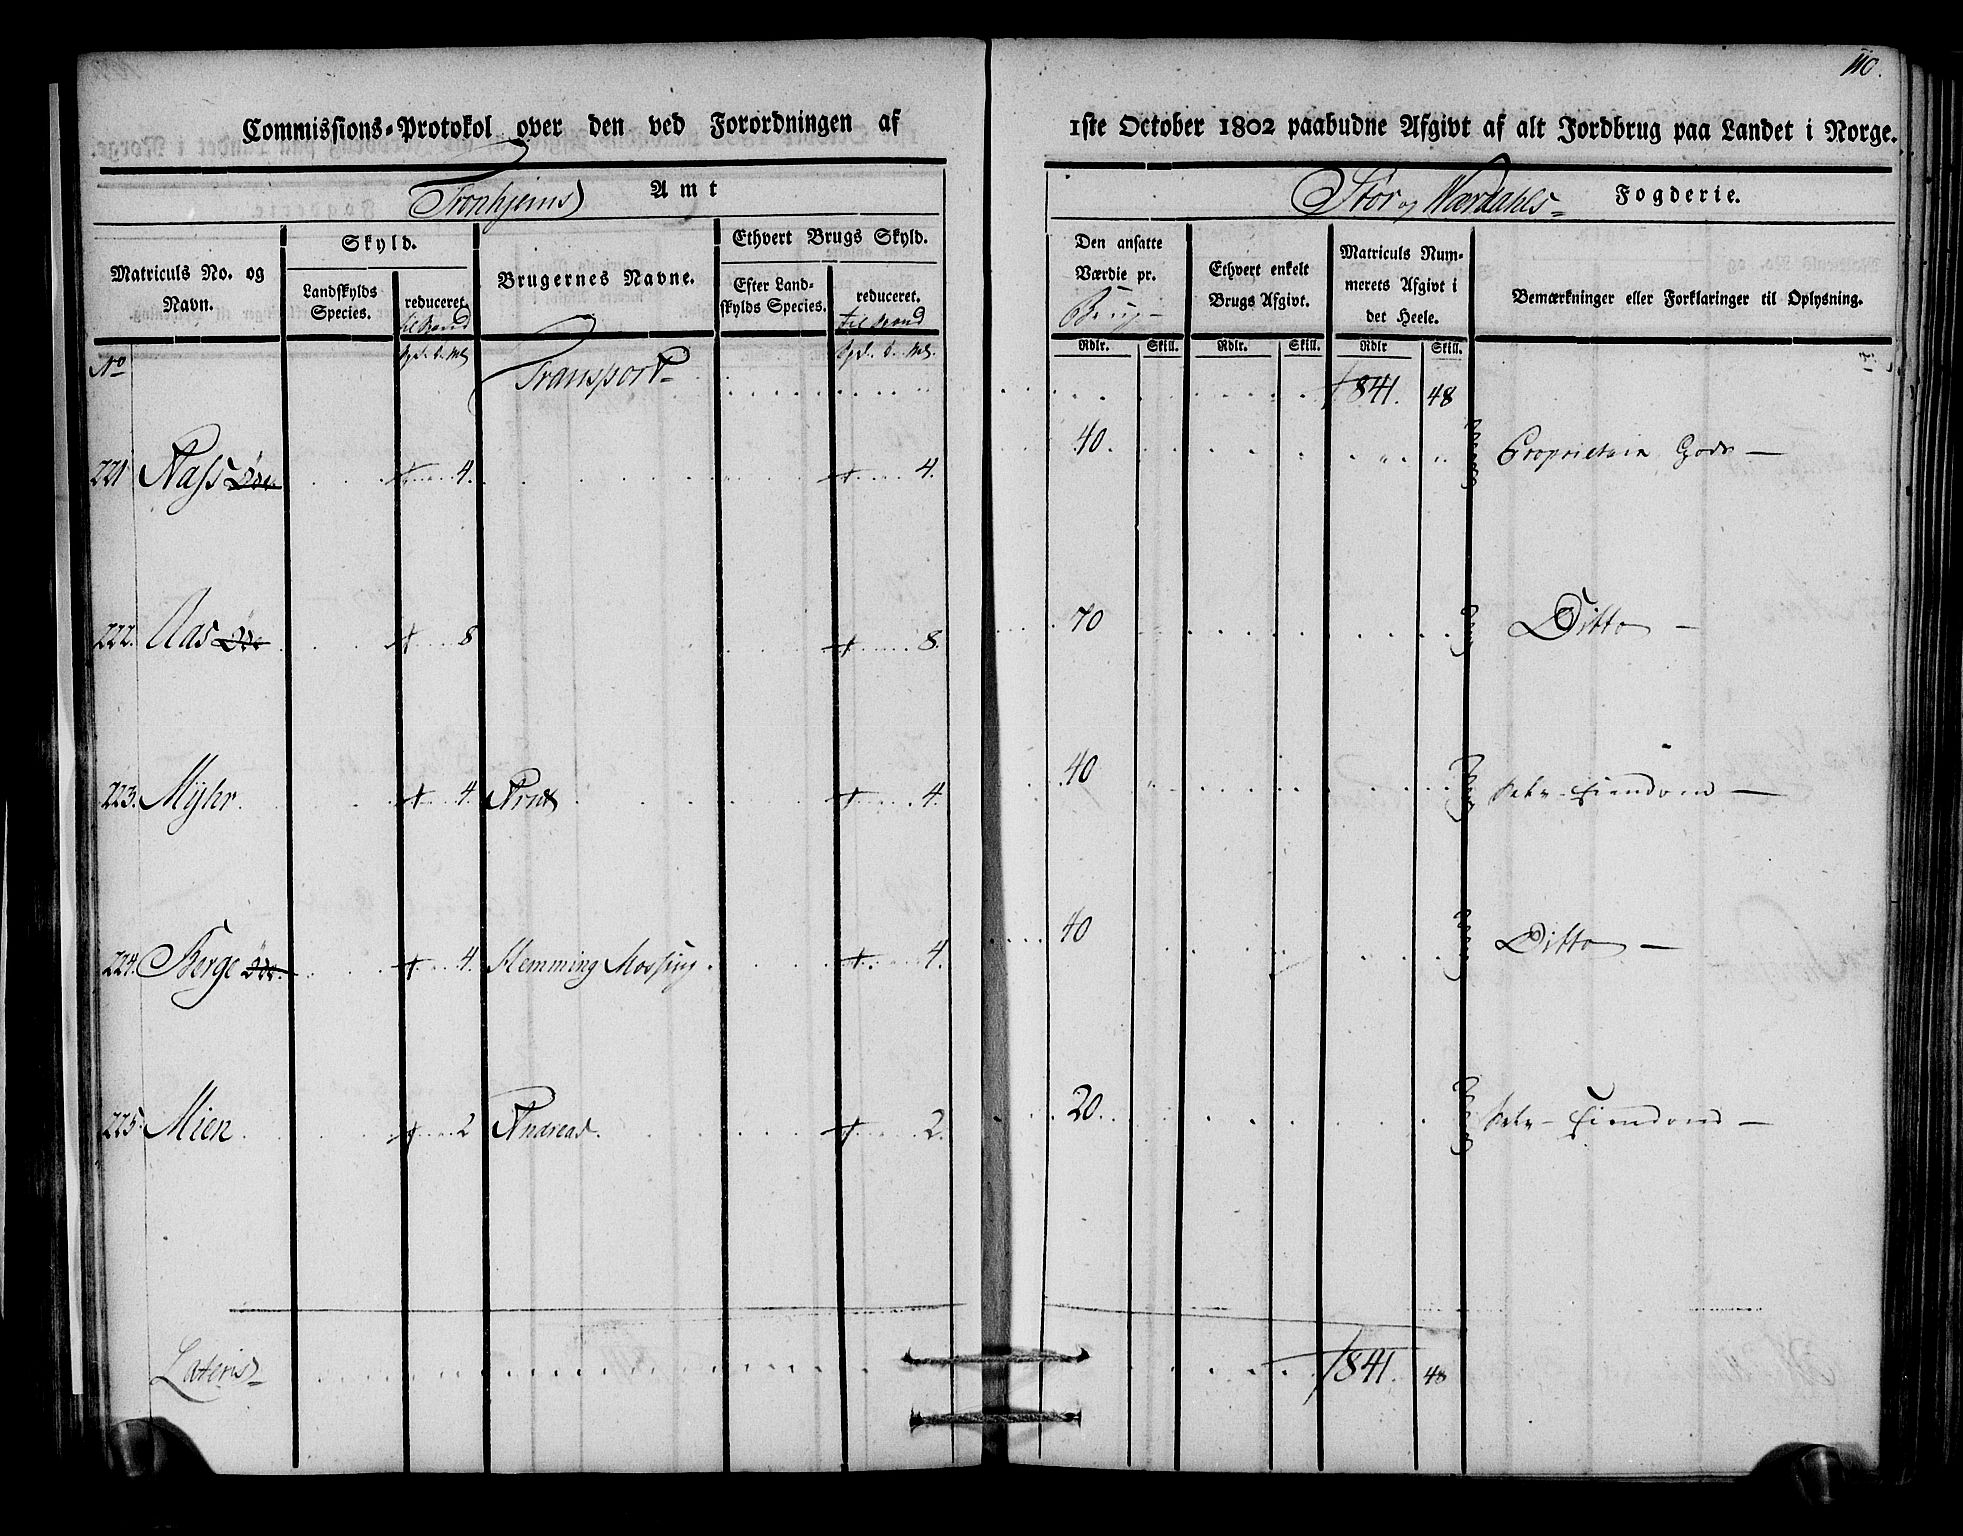 110.
Commissions-Protokol over den ved Forordningen af 1ste October 1802 paabudne Afgivt af alt Jordbrug paa Landet i Norge.
Tronhjems Amt
Stör og Værdahls Fogderie.
Matriculs No. og Navn.
Skyld.
Landskylds Species.
reduceret.
Brugernes Navne.
Ethvert Brugs Skyld.
Efter Landskylds Species.
reduceret.
Den ansatte Værdie pr. Brug
Ethvert enkelt Brugs Afgivt.
Matriculs Nummerets Afgivt i det Heele.
Bemærkninger eller Forklaringer til Oplysning.
Rdlr. Skill. Rdlr. Skill. Rdlr Skill.
No Transport 1841. 48
221 4. 4. 40. Proprietair Gods
222. Aas Øde 8 8. 70 Ditto
223. Myhr. 4. 4. 40 Eiendom
224. Berge Øde. 4. Hemming 4. 40 Ditto
225. Mien 2 Andreas. 2. 20. Eiendom
Lateris 1841. 48